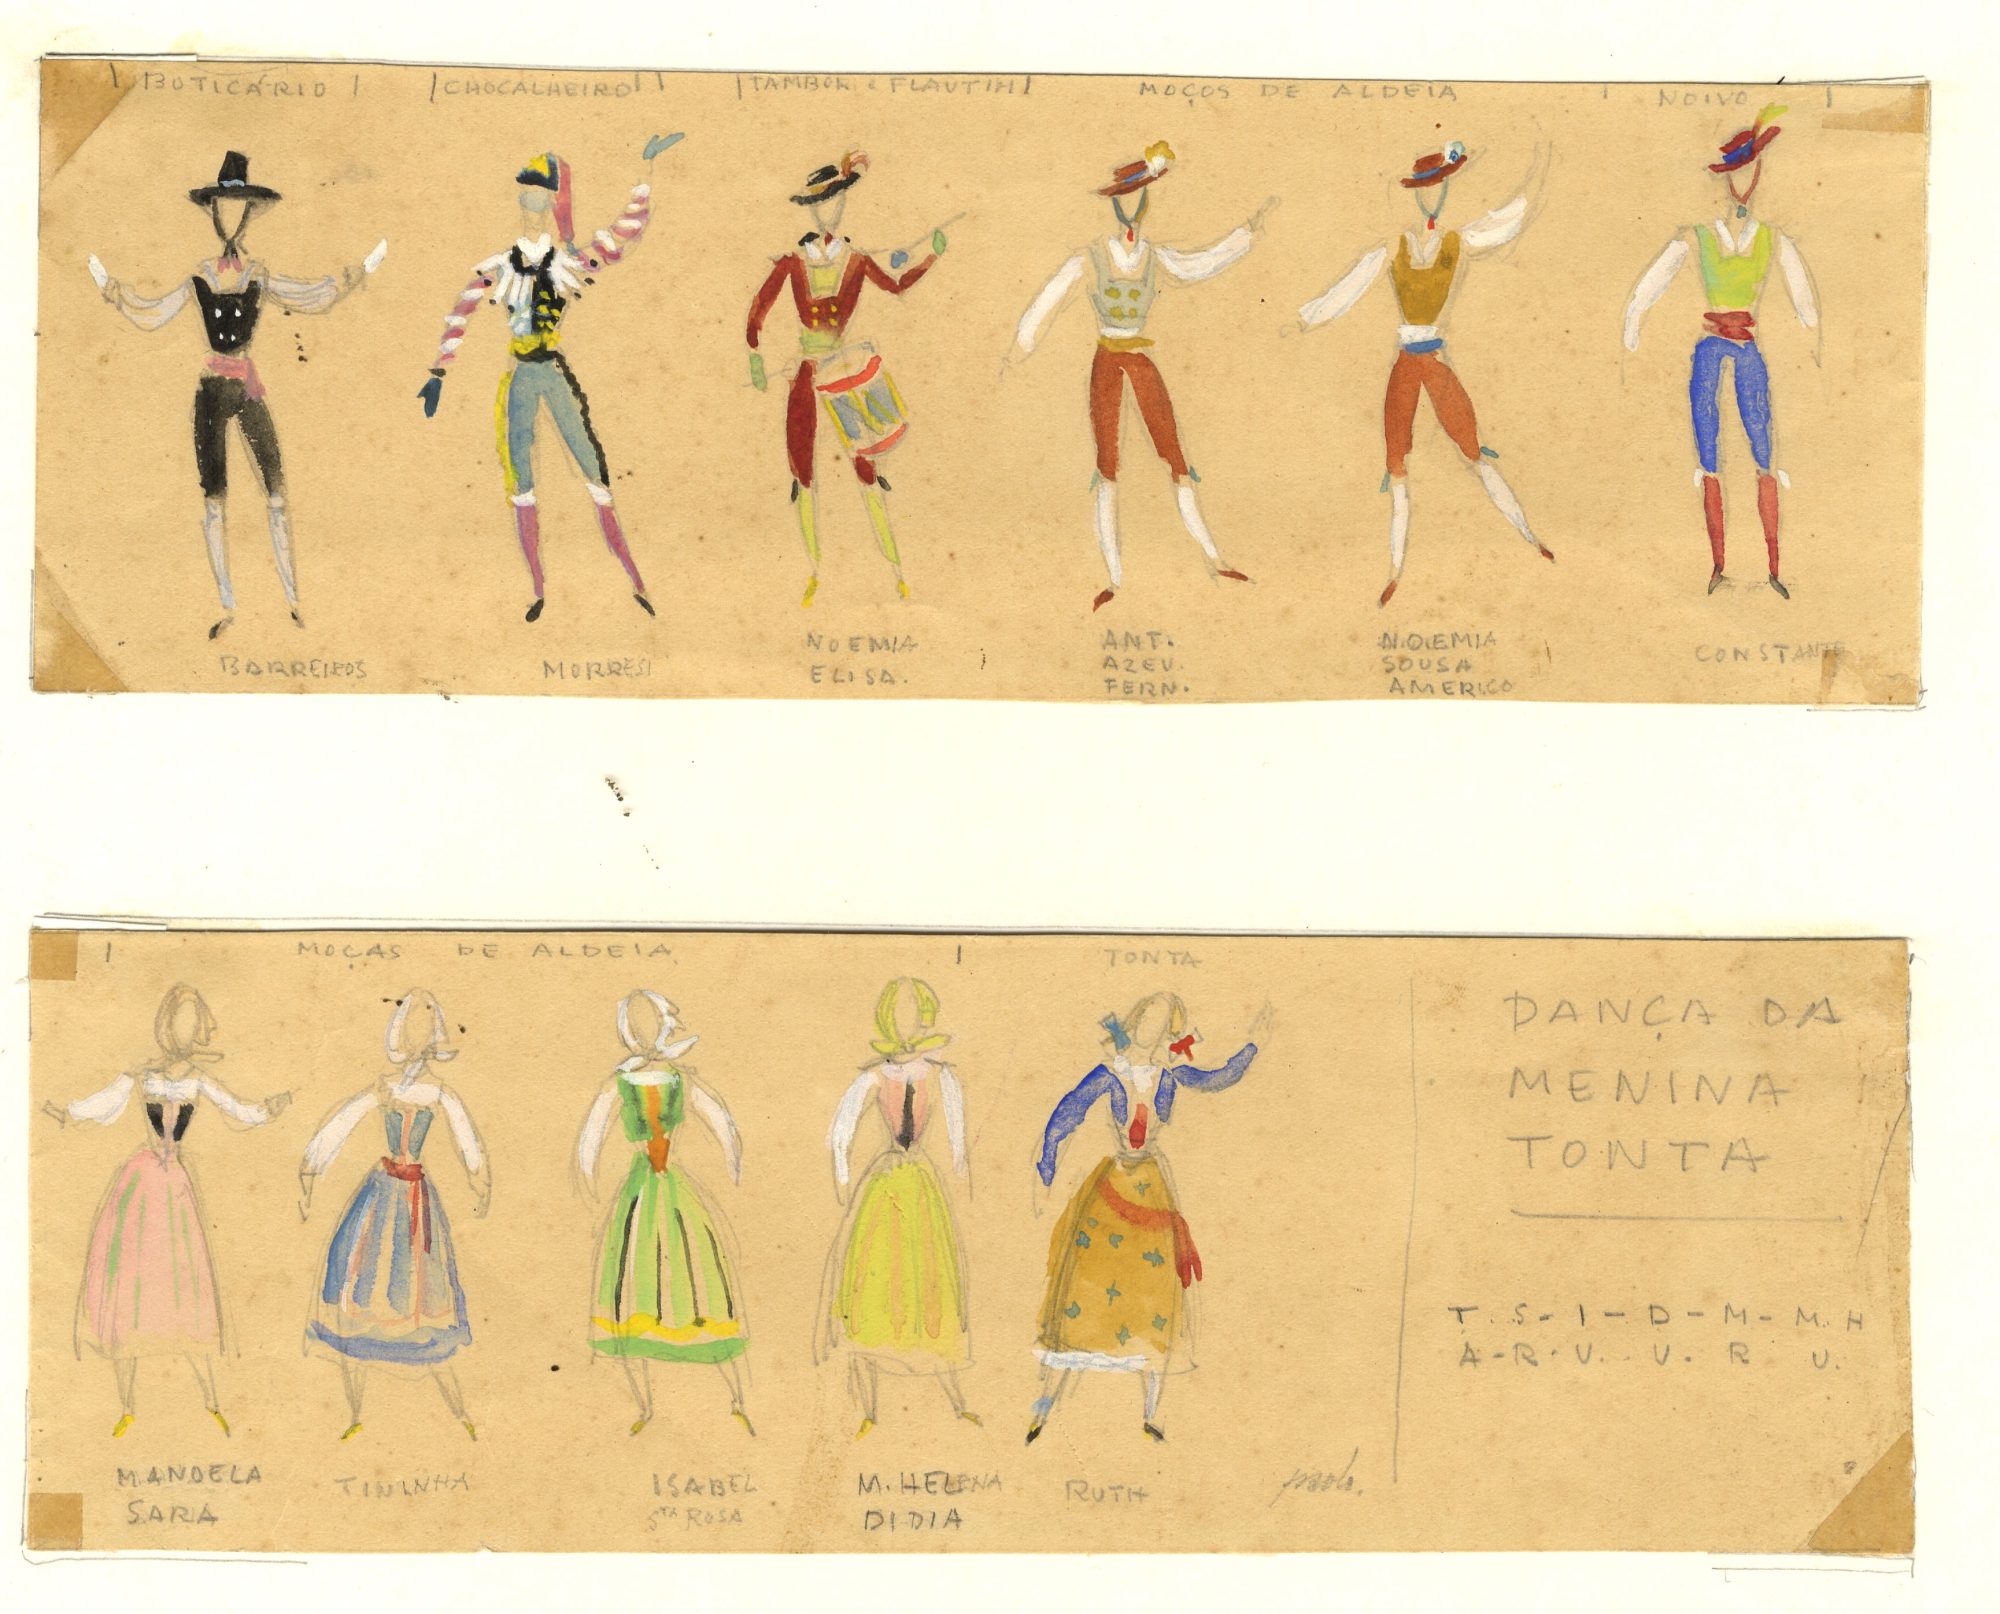 BOTICÁRIO
CHOCALHEIRO
TAMBOR e FLAUTIM
MOÇOS DE ALDEIA
NOIVO
BARREIROS
MORRESI
NOEMIA
ELISA.
ANT.
AZEV.
FERN.
NOEMIA
SOUSA
AMERICO
CONSTANTE
MOÇAS DE ALDEIA
TONTA
DANÇA DA
MENINA
TONTA
T. S - I - D - M - M. H
A - R. V. . V. R U.
MANOELA
SARA
TININHA
ISABEL
STA ROSA
M. HELENA
DIDIA
RUTH